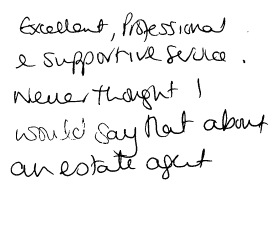 Excellent, Professional
& supportive service.
Never thought I
would say that about
an estate agent